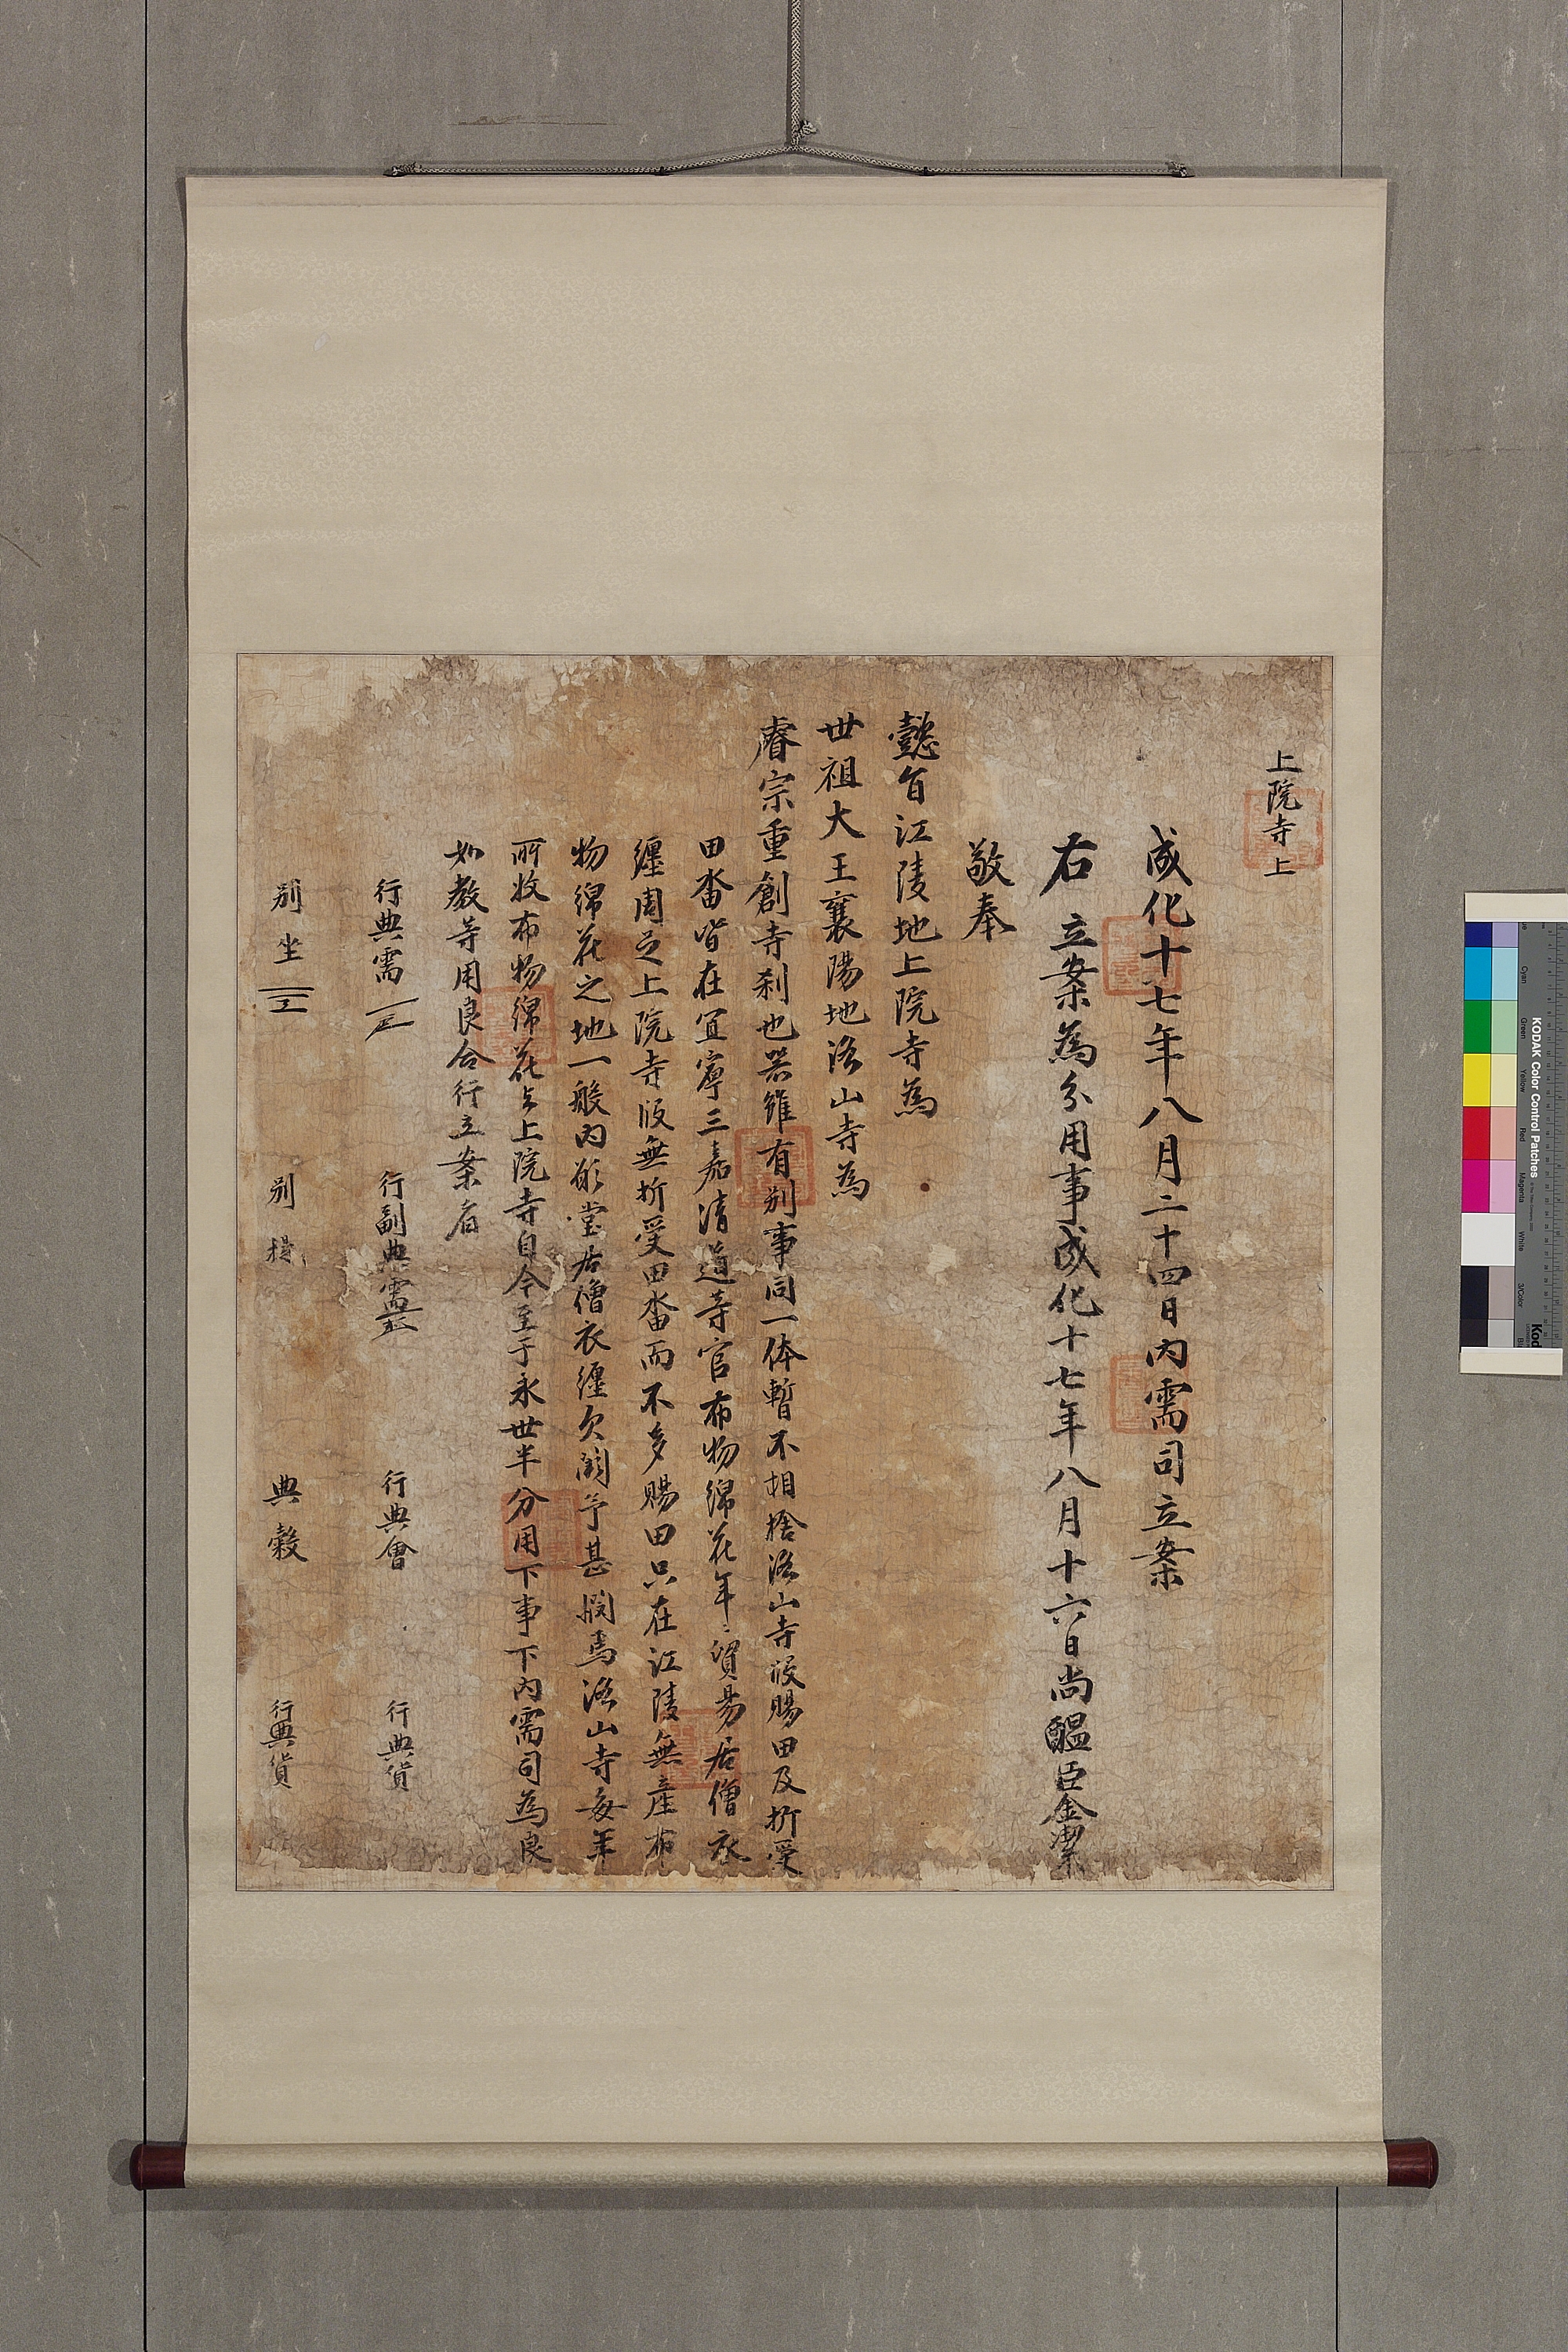 上院寺上
成化十七年八月二十四日內需司立案
右立案為分用事成化十七年八月十六日尚醞臣金潔
敬奉
懿旨江陵地上院寺為
世祖大王襄陽地洛山寺為
睿宗重創寺刹也器雖有別事同一体暫不相捨洛山寺段賜田及折受
田畓皆在宜寧三嘉清道等官布物綿花年〻貿易居僧衣
纏周足上院寺段無折受田畓而不多賜田只在江陵無産布
物綿花之地一般內願堂居僧衣纏欠闕予甚憫焉洛山寺每年
所收布物綿花上院寺自今至于永世半分用下事下內需司為良
如教等用良合行立案者
行典需 行副典需 行典會 行典貨
別坐 別提 典穀 行典貨
KODAK Color Control Patches
Cyan Green Yellow Red Magenta White 3/Color